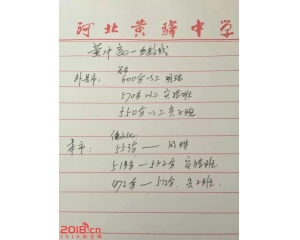 河北黄骅中学
黄中高一分数线
外县市: 600分以上 明珠
570分以上 实验班
550分以上 实力班
本市: 553分 — 明珠
513分 — 552分 实验班
472分 — 512分 实力班
2018.cn